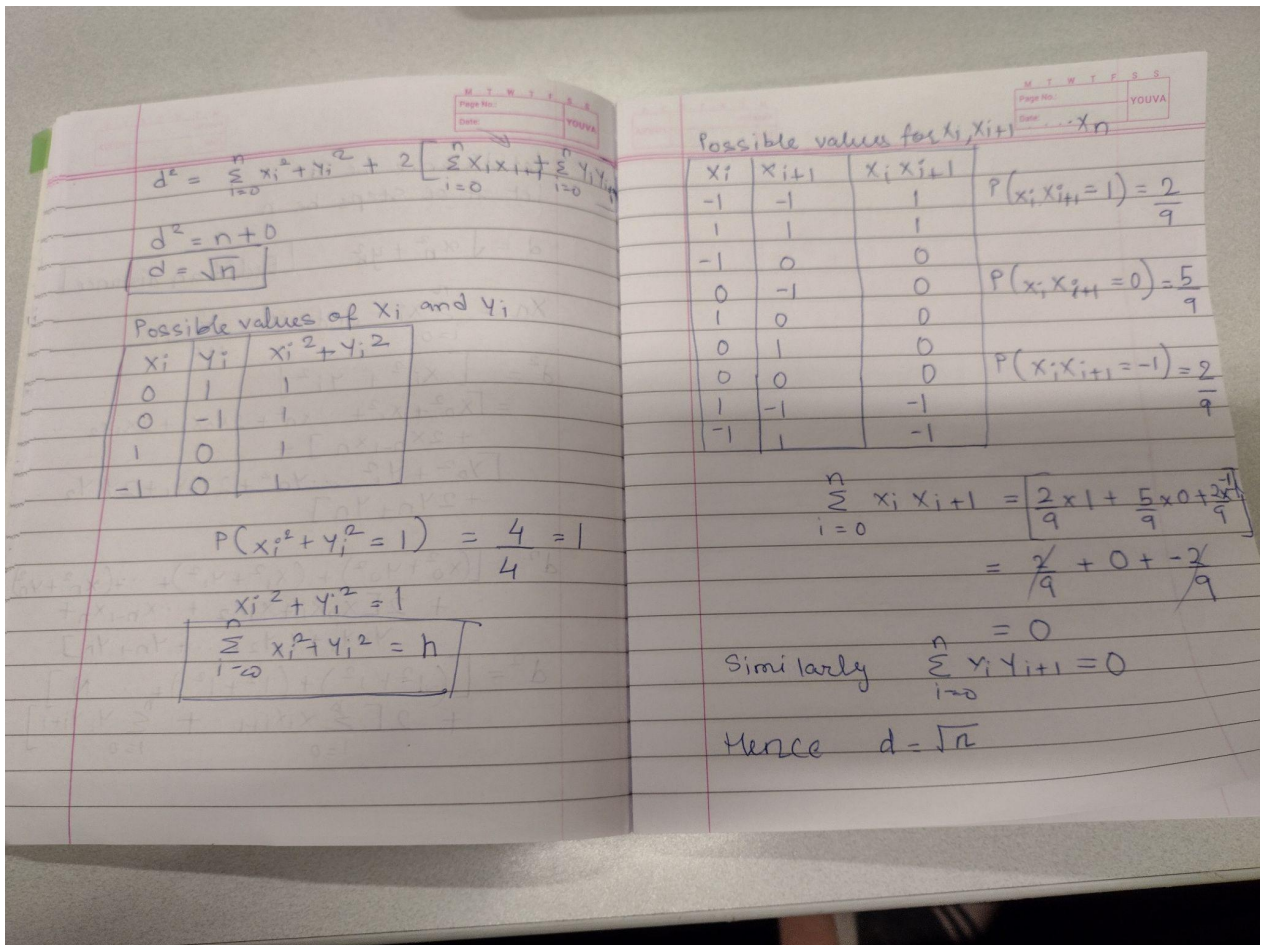 M T W T F S S
Page No.:
Date:
YOUVA
d² = Σ(i=0 to n) xi² + yi² + 2[Σ(i=0 to n) xi xi+1 + Σ(i=0 to n) yi yi+1
d² = n + 0
d = √n
Possible values of xi and yi
xi | yi | xi² + yi²
0 | 1 | 1
0 | -1 | 1
1 | 0 | 1
-1 | 0 | 1
P(xi² + yi² = 1) = 4/4 = 1
xi² + yi² = 1
Σ(i=0 to n) xi² + yi² = n
M T W T F S S
Page No.:
Date:
YOUVA
Possible values for xi, xi+1 ..... xn
xi | xi+1 | xi xi+1
-1 | -1 | 1
1 | 1 | 1
-1 | 0 | 0
0 | -1 | 0
1 | 0 | 0
0 | 1 | 0
0 | 0 | 0
1 | -1 | -1
-1 | 1 | -1
P(xi xi+1 = 1) = 2/9
P(xi xi+1 = 0) = 5/9
P(xi xi+1 = -1) = 2/9
Σ(i=0 to n) xi xi+1 = [2/9 x 1 + 5/9 x 0 + 2/9 x -1]
= 2/9 + 0 + -2/9
= 0
Similarly Σ(i=0 to n) yi yi+1 = 0
Hence d = √n